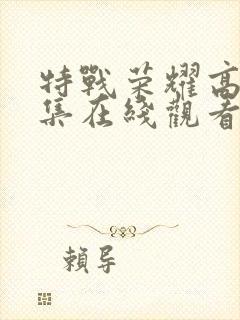 特戰荣耀高
集在綫觀看
賴导